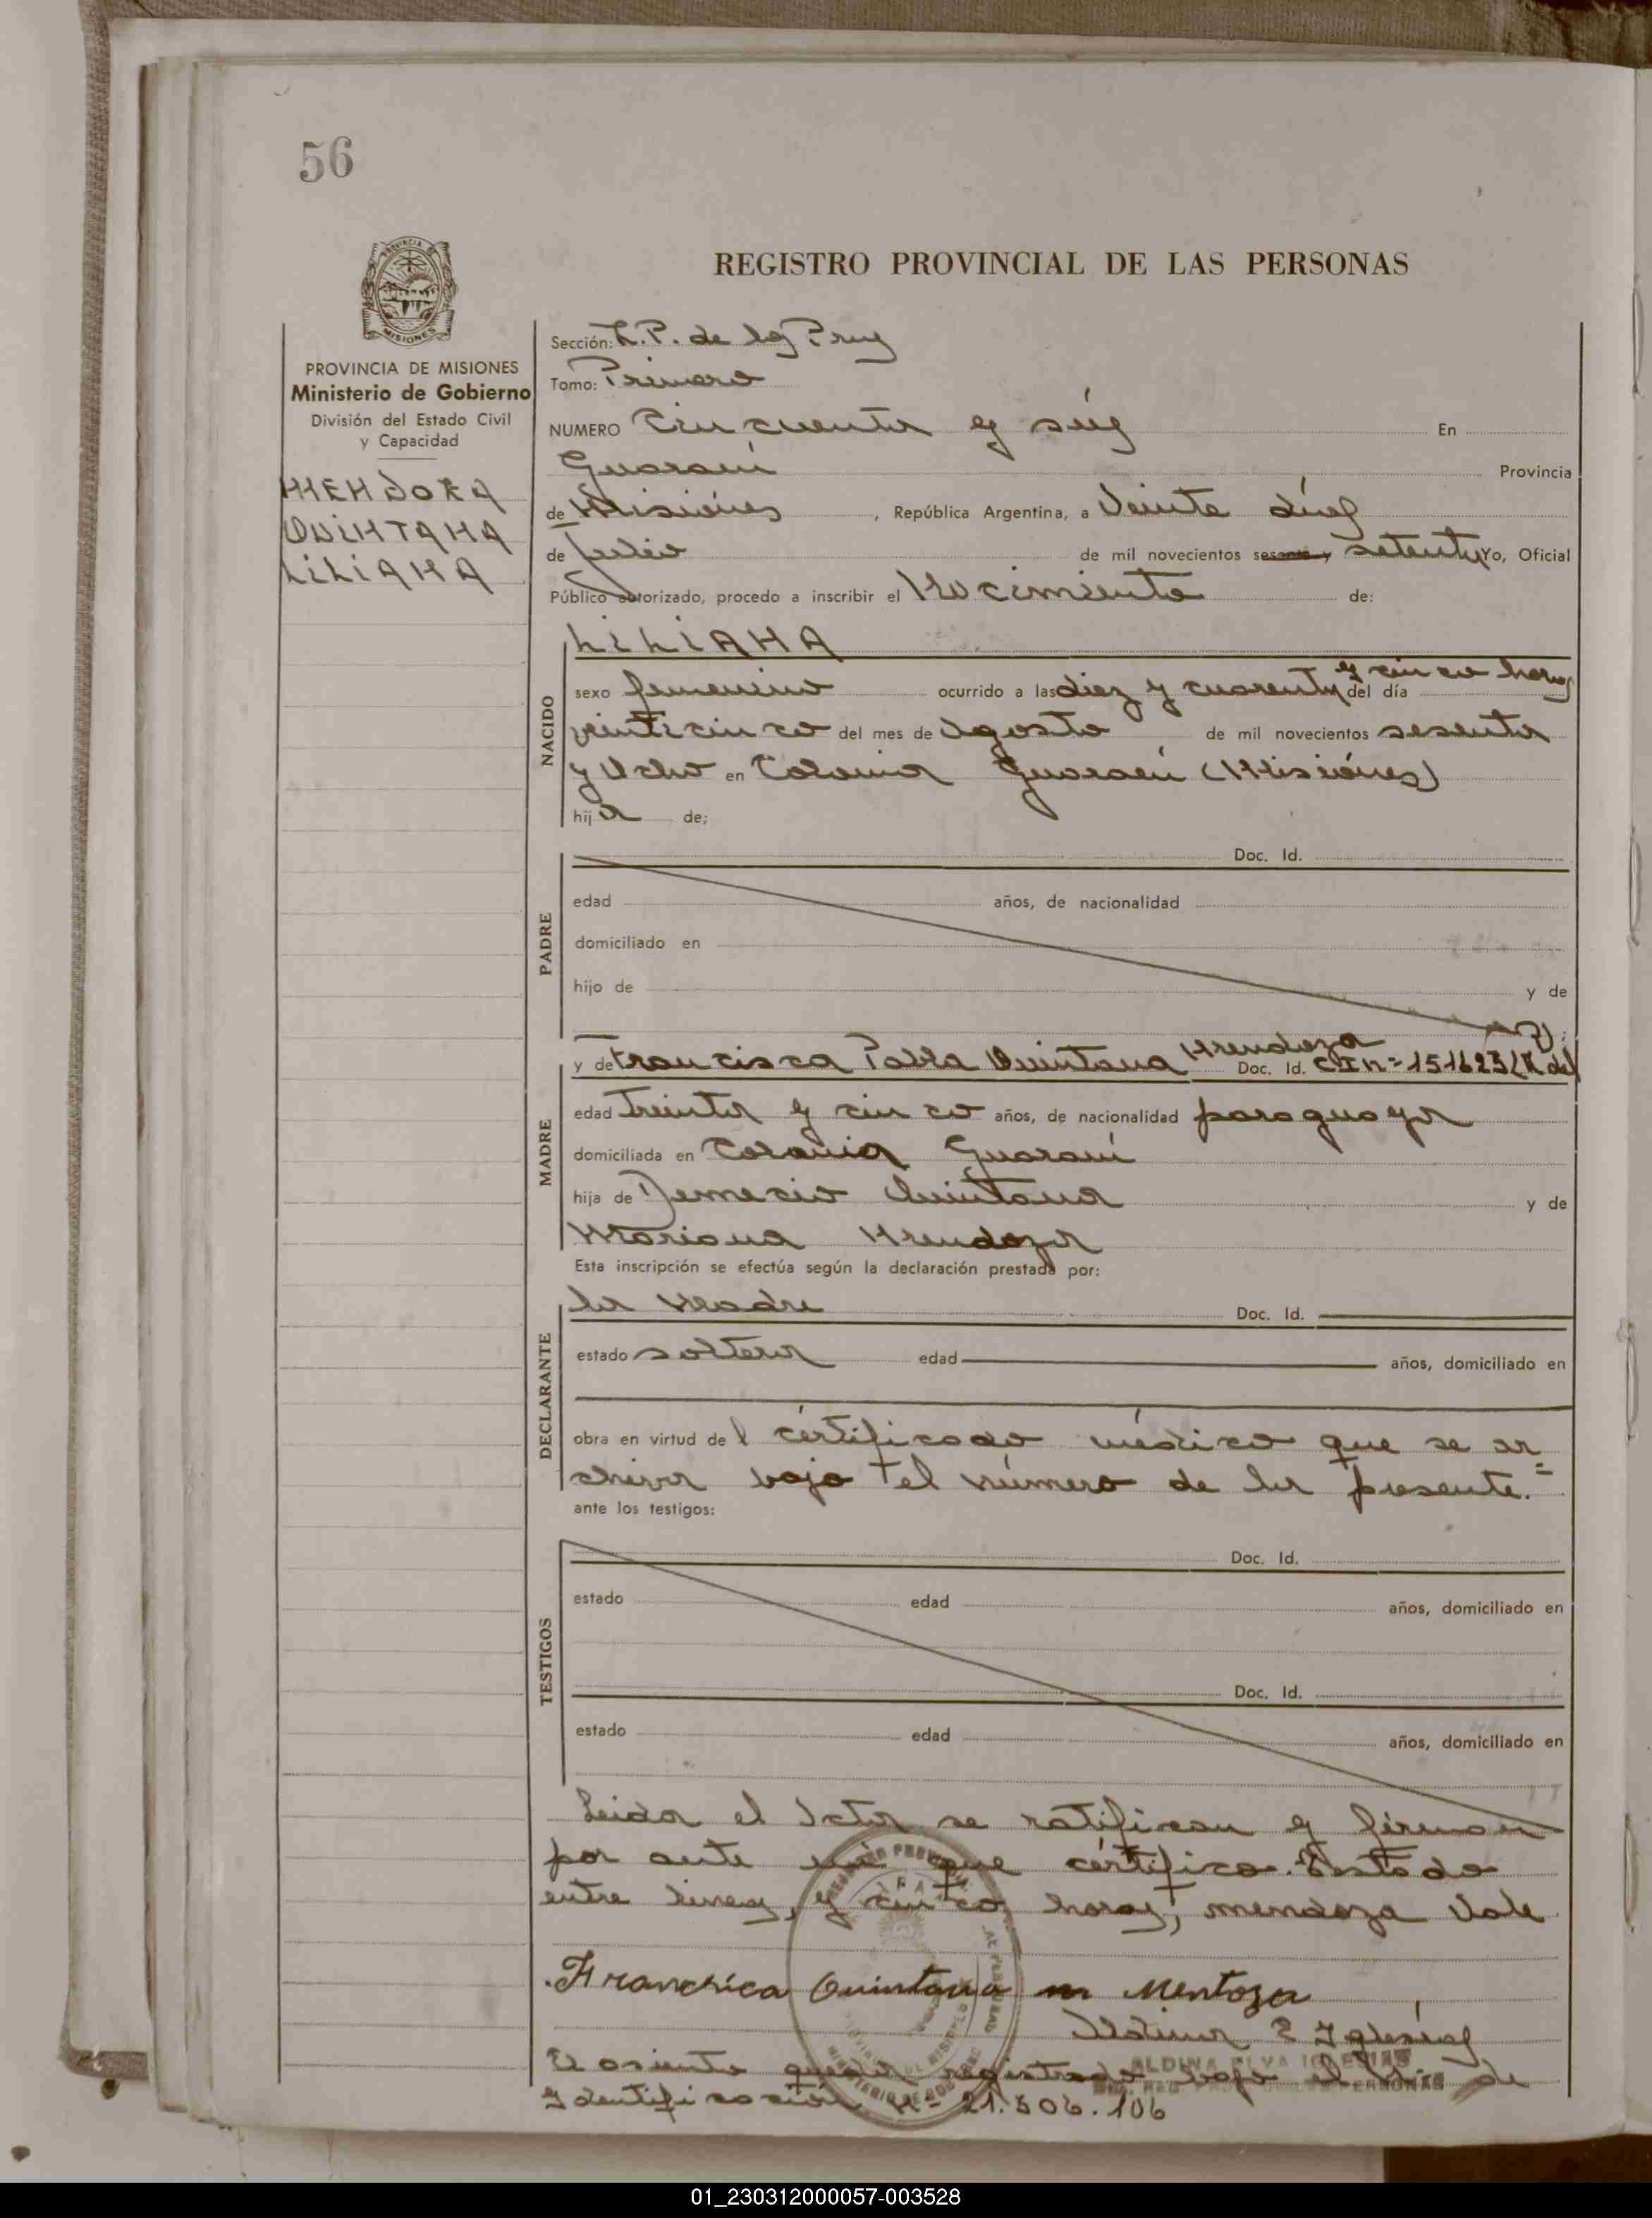 56
REGISTRO PROVINCIAL DE LAS PERSONAS
PROVINCIA DE MISIONES
Ministerio de Gobierno
División del Estado Civil
y Capacidad
MENDOZA
QUINTANA
LILIANA
Sección: L.P. de los
Tomo: Primero
NUMERO Cincuenta y séis En
Guaraní Provincia
de Misiónes, República Argentina, a Veinte días
de Julio de mil novecientos sesenta y setenta Yo, Oficial
Público autorizado, procedo a inscribir el Nacimiento de:
NACIDO
LILIANA
y cinco horas
sexo femenino ocurrido a las diez y cuarenta del día
veinticinco del mes de Agosto de mil novecientos sesenta
y Ocho en Colonia Guaraní (Misiónes)
hija de;
PADRE
Doc. Id.
edad años, de nacionalidad
domiciliado en
hijo de y de
MADRE
Mendoza
y de Francisca Pabla Quintana Doc. Id. CI nº
edad Treinta y cinco años, de nacionalidad paraguaya
domiciliada en Colonia Guaraní
hija de Demecio Quintana y de
Mariana Mendoza
Esta inscripción se efectúa según la declaración prestada por:
DECLARANTE
la Madre Doc. Id.
estado soltera edad años, domiciliado en
obra en virtud del cértificado médico que se ar=
chiva bajo el número de la presente.=
ante los testigos:
TESTIGOS
Doc. Id.
estado edad años, domiciliado en
Doc. Id.
estado edad años, domiciliado en
Leida el Acta se ratifican y firman
por ante mi que cértifico. Testado
entre lineas, y cinco horas, mendoza Vale
Francisca Quintana m Mentoza
Aldina E Iglesias
ALDINA ELVA IGLESIAS
El asiento queda registrado bajo el Nro de
Identificación Nº 21.306.106
01_230312000057-003528